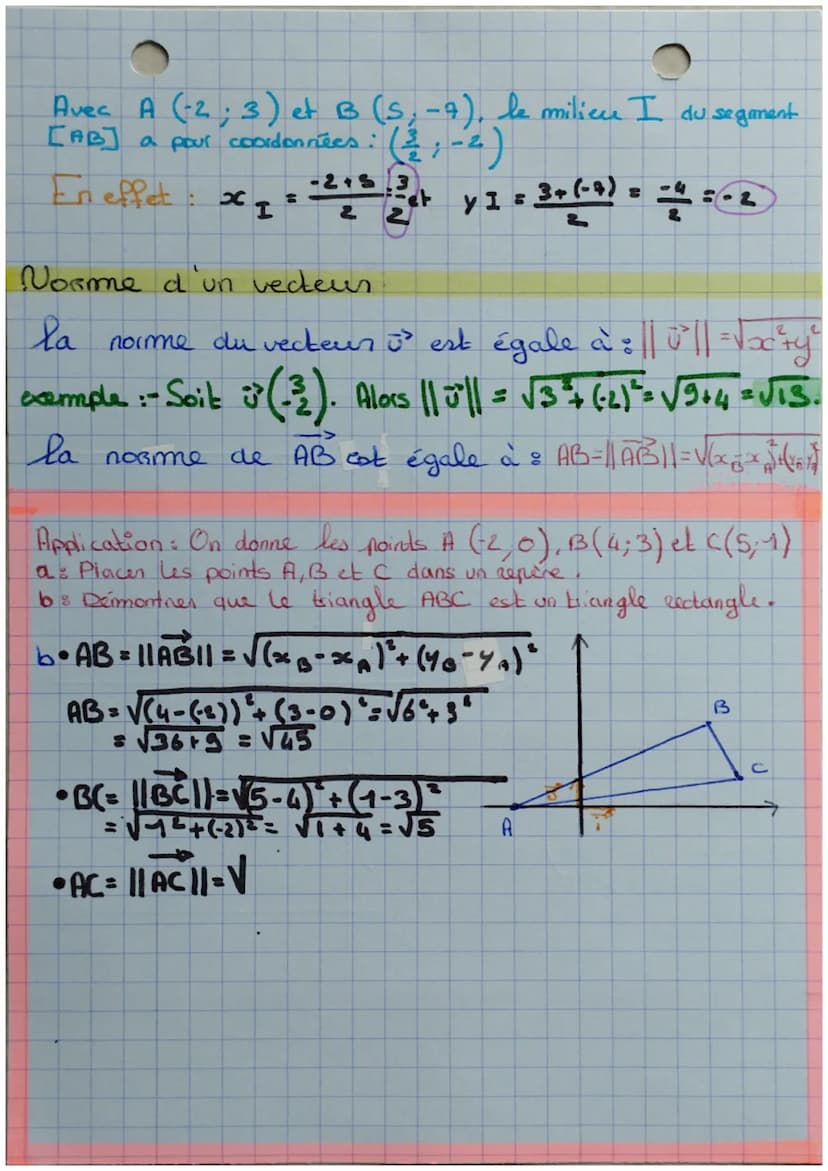 Avec A (-2 ; 3) et B (5 ; -7), le milieu I du segment
[AB] a pour coordonnées : (3/2 ; -2)
En effet : x_I = (-2+5)/2 = 3/2 et y_I = (3+(-7))/2 = -4/2 = -2
Norme d'un vecteur
La norme du vecteur u⃗ est égale à : ||u⃗|| = √(x²+y²)
exemple :- Soit u⃗ (3 -2). Alors ||u⃗|| = √(3²+(-2)²) = √(9+4) = √13.
La norme de AB⃗ est égale à : AB = ||AB⃗|| = √((x_B-x_A)²+(y_B-y_A)²)
Application : On donne les points A (-2, 0), B(4;3) et C(5,1)
a : Placer les points A, B et C dans un repère.
b : Démontrer que le triangle ABC est un triangle rectangle.
b • AB = ||AB⃗|| = √((x_B-x_A)²+(y_B-y_A)²)
AB = √((4-(-2))²+(3-0)²) = √(6²+3²)
= √(36+9) = √45
• BC = ||BC⃗|| = √((5-4)²+(1-3)²)
= √(1²+(-2)²) = √(1+4) = √5
• AC = ||AC⃗|| = √
B
C
j⃗
A
i⃗